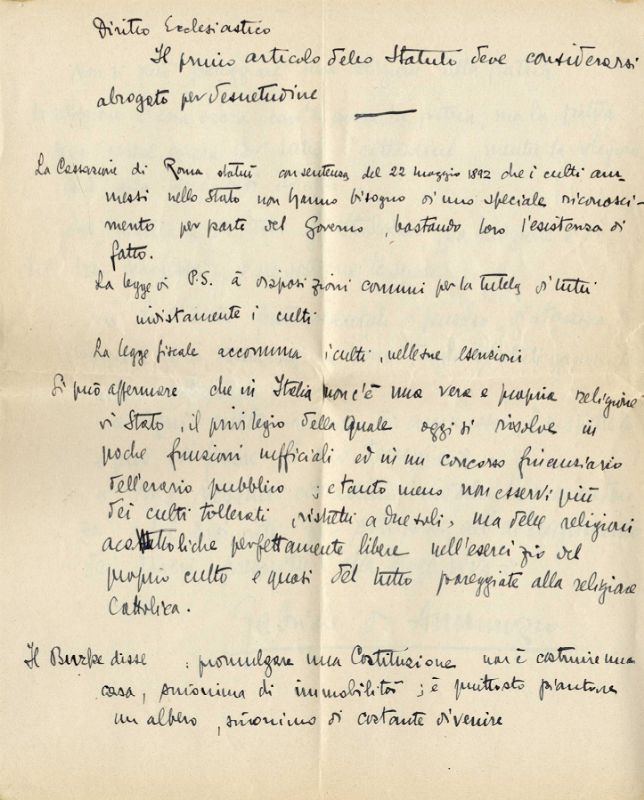 Diritto Ecclesiastico
Il primo articolo dello Statuto deve considerarsi
abrogato per desuetudine
La Cassazione di Roma statuì con sentenza del 22 maggio 1892 che i culti am-
messi nello Stato non hanno bisogno di uno speciale riconosci-
mento per parte del Governo, bastando loro l'esistenza di
fatto.
La legge di P.S. à disposizioni comuni per la tutela di tutti
indistamente i culti
La legge fiscale accomuna i culti, nelle sue esenzioni
Si può affermare che in Italia non c'è una vera e propria religione
di Stato, il privilegio della quale oggi si risolve in
poche funzioni ufficiali ed in un concorso finanziario
dell'erario pubblico; e tanto meno non esservi più
dei culti tollerati, ristretti a due soli, ma delle religioni
acattoliche perfettamente libere nell'esercizio del
proprio culto e quasi del tutto pareggiate alla religione
Cattolica.
Il disse: promulgare una Costituzione non è costruire una
casa, sinonima di immobilità; è piuttosto piantare
un albero, sinonimo di costante divenire